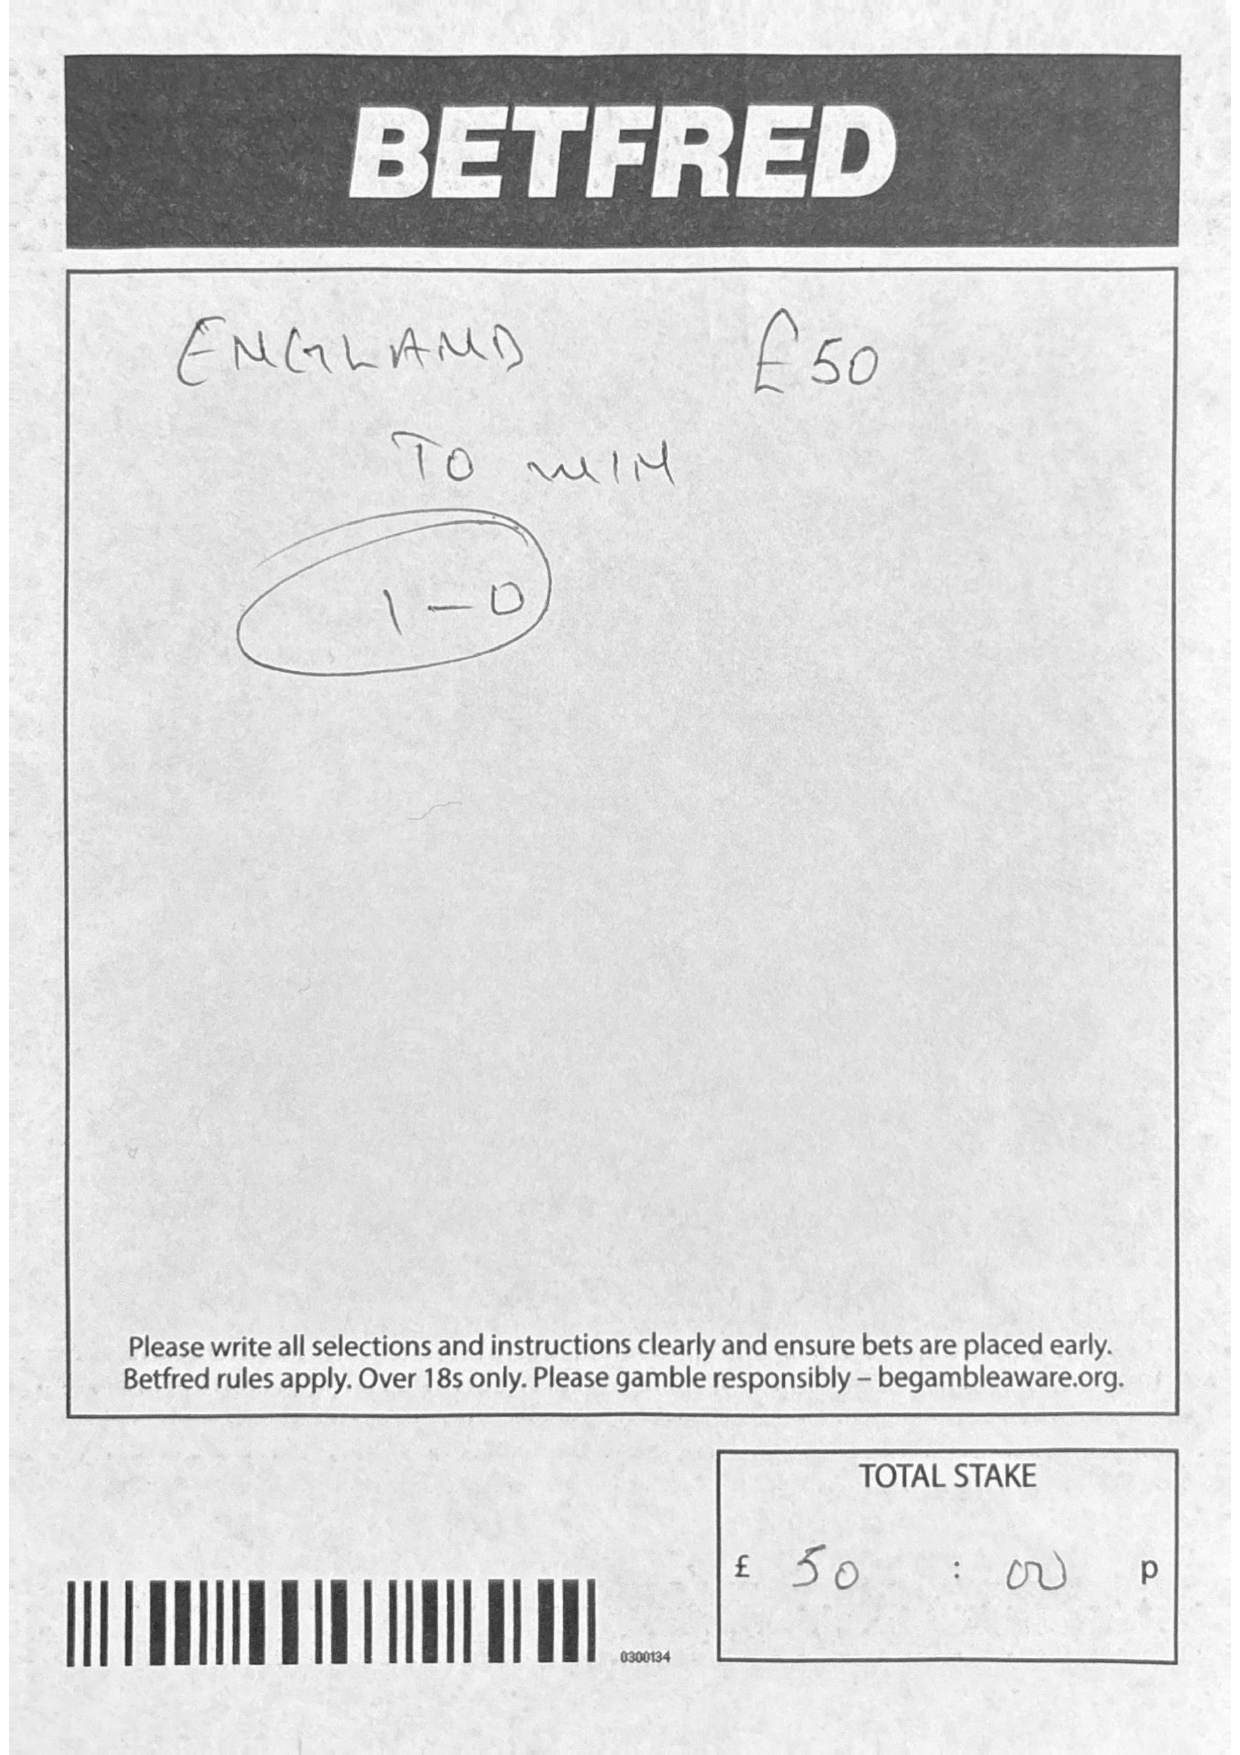 BETFRED
ENGLAND £50
TO WIN
1-0
Please write all selections and instructions clearly and ensure bets are placed early.
Betfred rules apply. Over 18s only. Please gamble responsibly – begambleaware.org.
TOTAL STAKE
£ 50 : 00 p
0300134